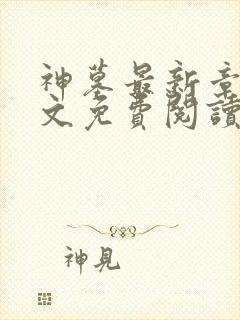 神墓最新章
文免費閱讀
神見